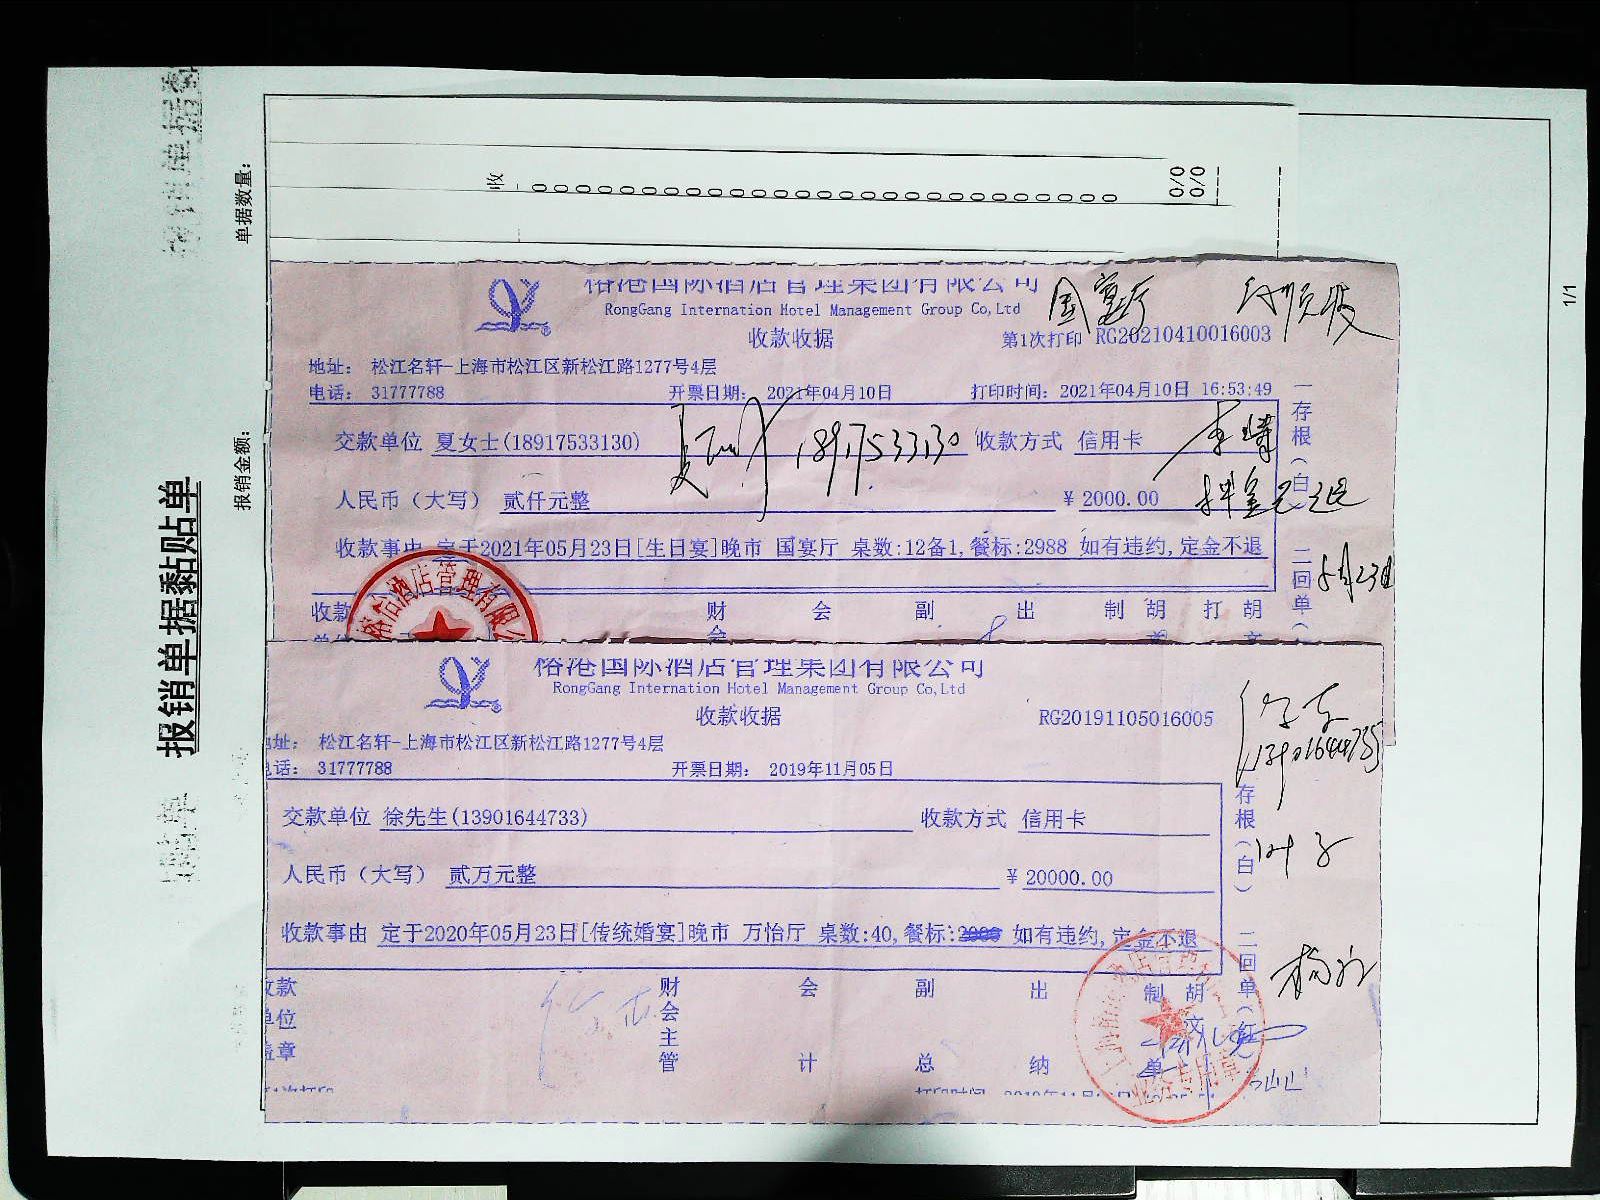 报销单据黏贴单
单据数量：
报销金额：
收
0/0
0/0
1/1
榕港国际酒店管理集团有限公司
RongGang International Hotel Management Group Co,Ltd
国宴厅
收款收据
第1次打印 RG20210410016003
地址： 松江名轩-上海市松江区新松江路1277号4层
电话： 31777788 开票日期： 2021年04月10日 打印时间：2021年04月10日 16:53:49
交款单位 夏女士(18917533130) 18917533130 收款方式 信用卡
人民币（大写） 贰仟元整 ￥2000.00
收款事由 定于2021年05月23日[生日宴]晚市 国宴厅 桌数:12备1,餐标:2988 如有违约,定金不退
5月23日
收款 财 会 副 出 制 胡 打 胡
一存根（白） 二回单（
酒店管理有限公
榕港国际酒店管理集团有限公司
RongGang International Hotel Management Group Co,Ltd
收款收据
RG20191105016005
地址： 松江名轩-上海市松江区新松江路1277号4层
电话： 31777788 开票日期： 2019年11月05日
交款单位 徐先生(13901644733) 收款方式 信用卡
人民币（大写） 贰万元整 ￥20000.00
收款事由 定于2020年05月23日[传统婚宴]晚市 万怡厅 桌数:40,餐标: 如有违约,定金不退
收款 财 会 副 出 制 胡
单位 会 文
盖章 主管 计 总 纳 单
存根（白） 二回单（红